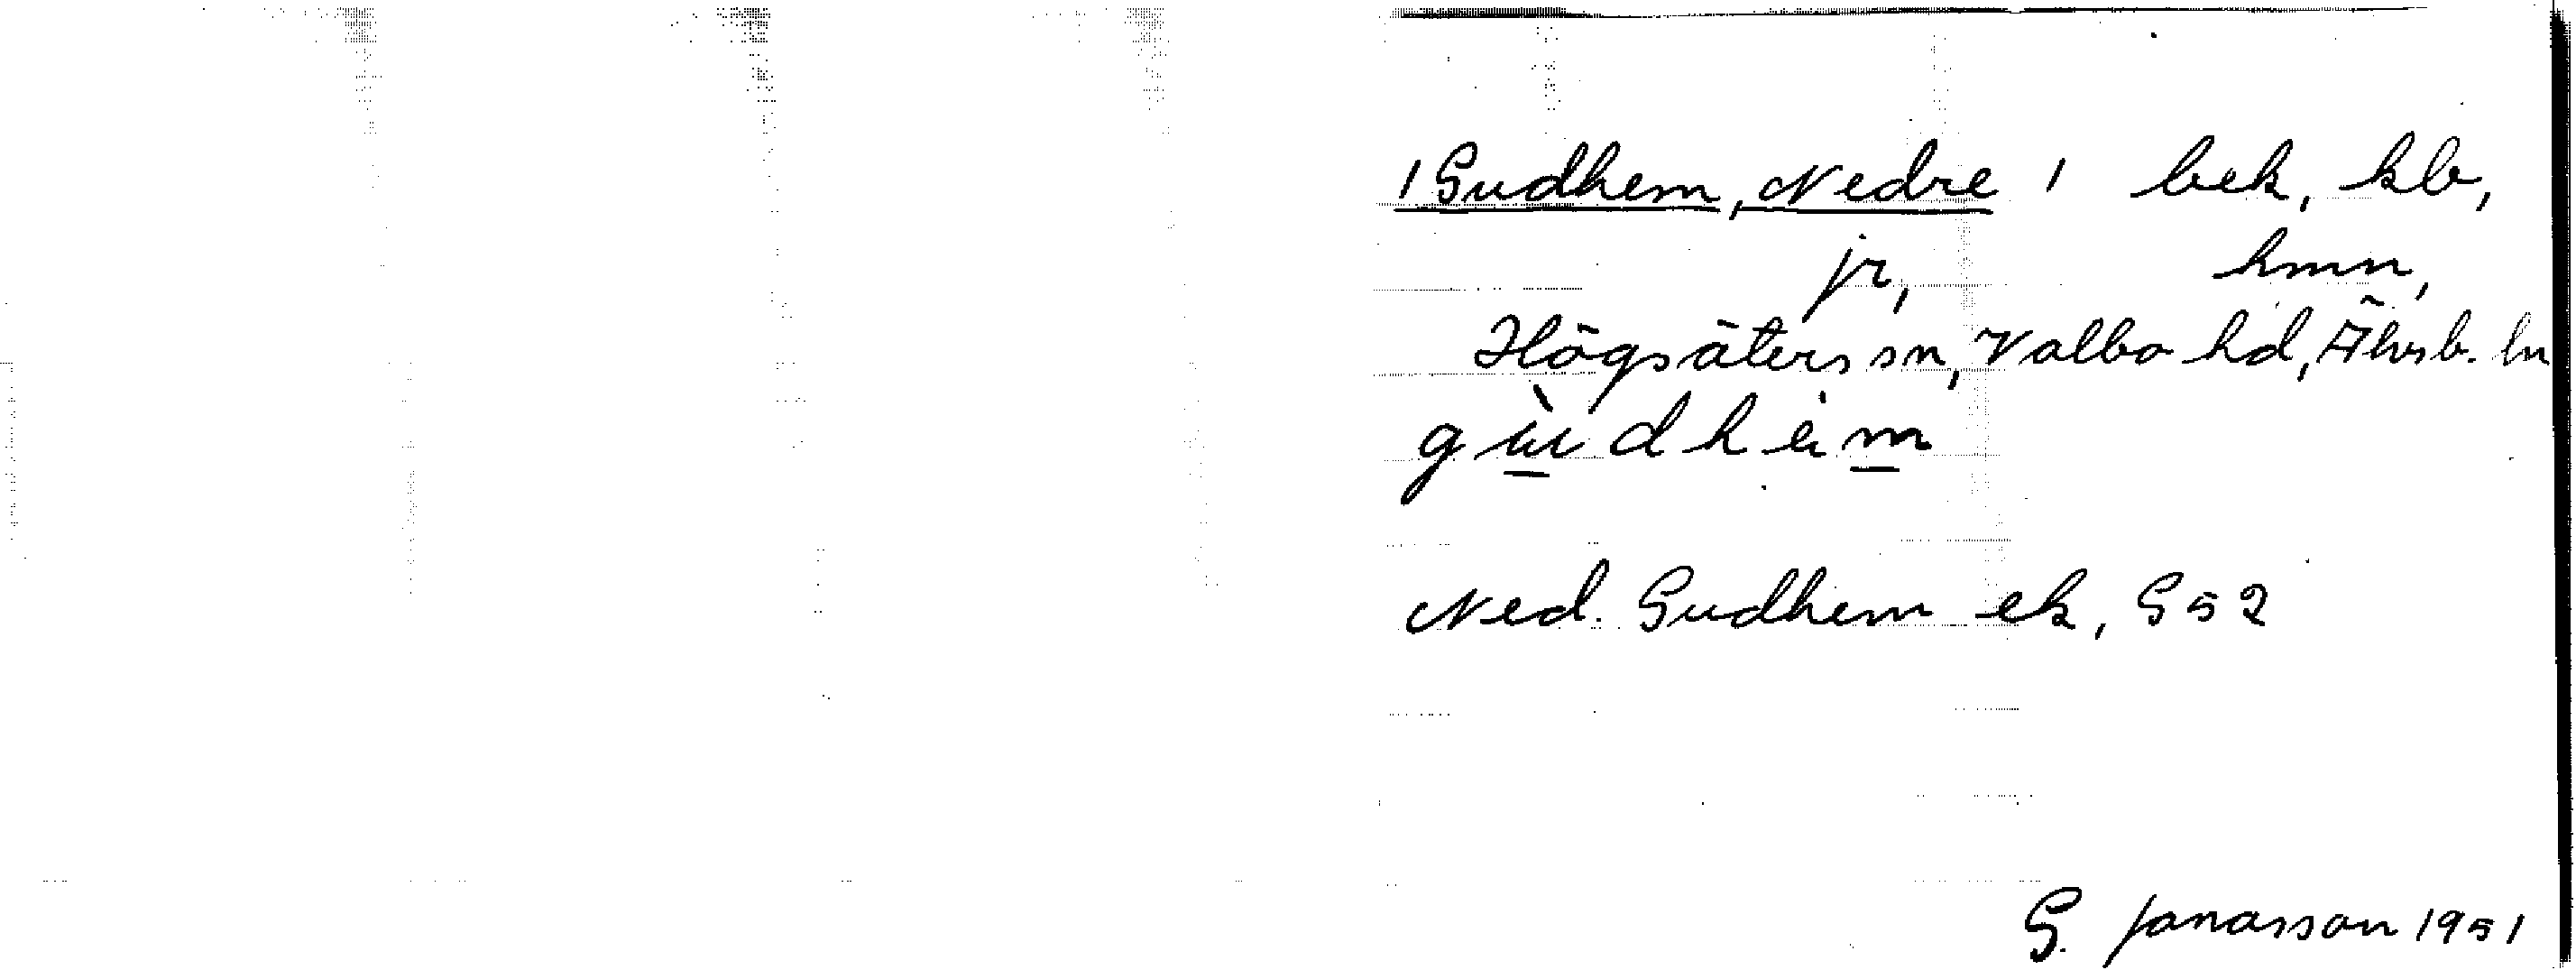 /Gudhem, Nedre/ bek, kb,
jr, hmn,
Högsäters sn, Valbo hd, Älvsb. ln
gùdhèm
Ned. Gudhem ek, G 52
G. Jonasson 1951